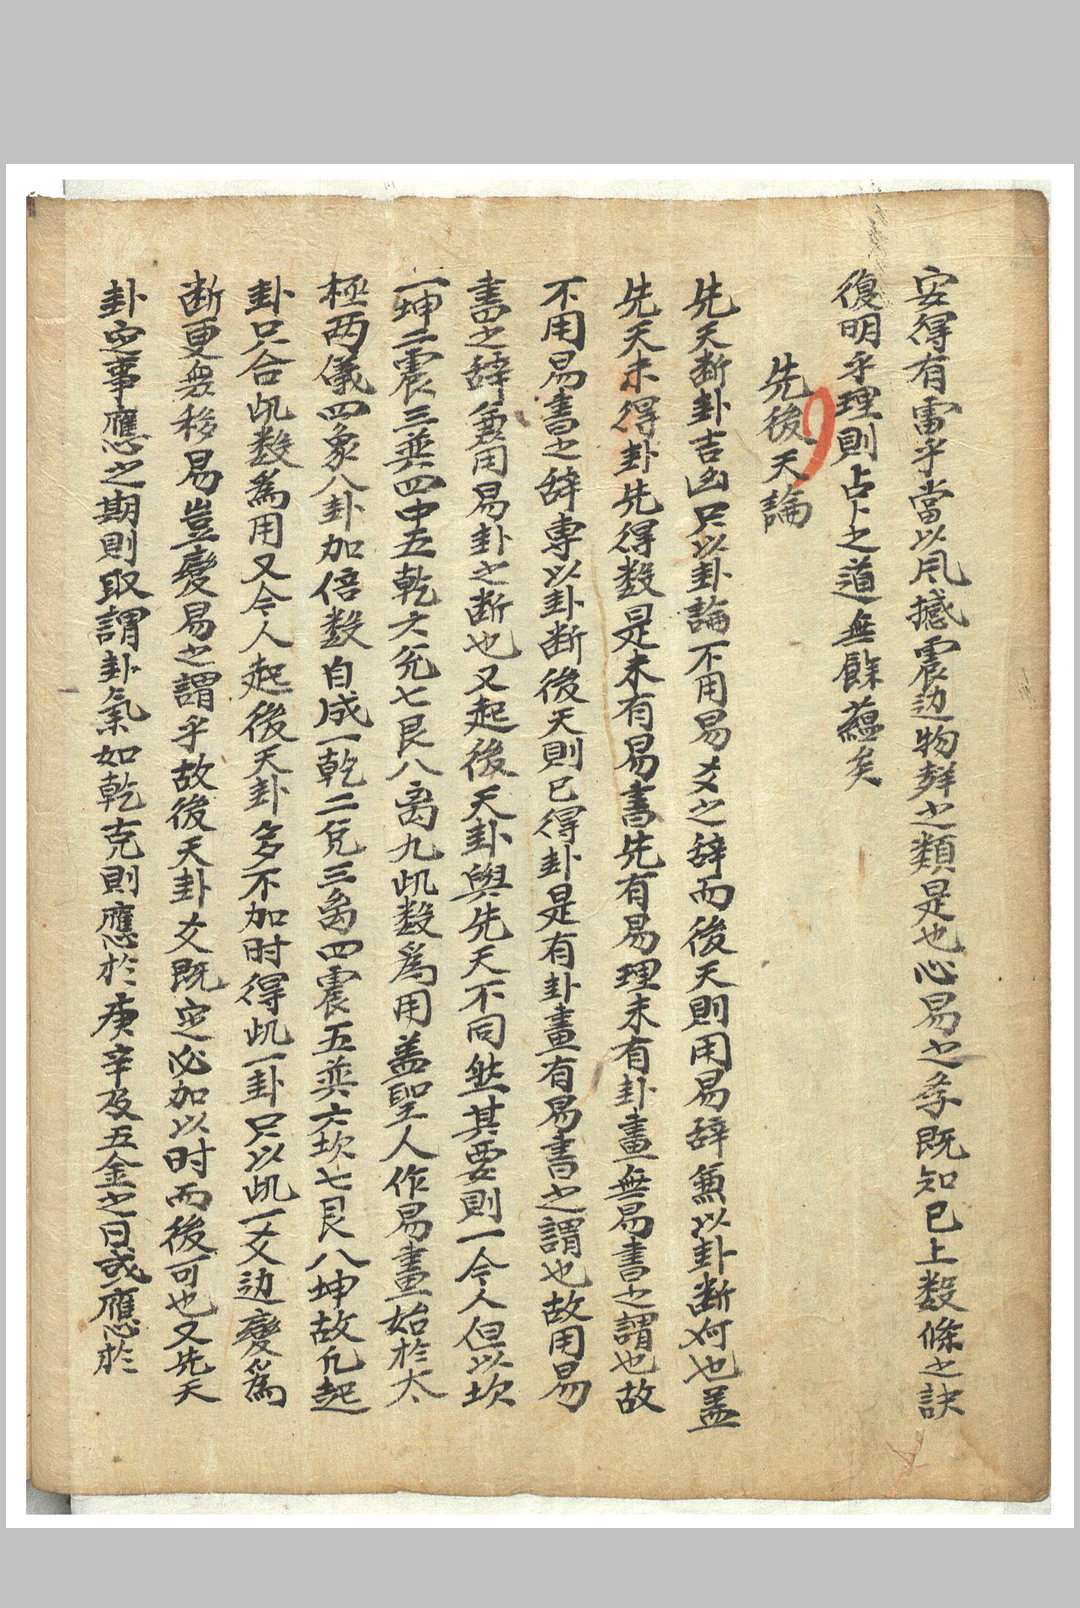 安得有雷乎當以風撼震边物鮮之類是也心易之季既知已上数條之訣
復明乎理則占卜之道無餘蘊矣
先後天論
先天断卦吉凶只以卦論不用易爻之辞而後天則用易辞兼以卦断何也蓋
先天未得卦先得数是未有易書先有易理未有卦畫無易書之謂也故
不用易書之辞専以卦断後天則已得卦是有卦畫有易書之謂也故用易
書之辞兼用易卦之断也又起後天卦與先天不同然其要則一今人但以坎
一坤二震三巽四中五乾六兊七艮八离九此数爲用盖聖人作易畫始於太
極两儀四象八卦加倍数自成一乾二兊三离四震五巽六坎七艮八坤故凢起
卦只合此数爲用又今人起後天卦多不加时得此一卦只以此一爻边變爲
断更無移易豈變易之謂乎故後天卦爻既定必加以时而後可也又先天
卦定事應之期則取謂卦氣如乾克則應於庚辛及五金之日或應於